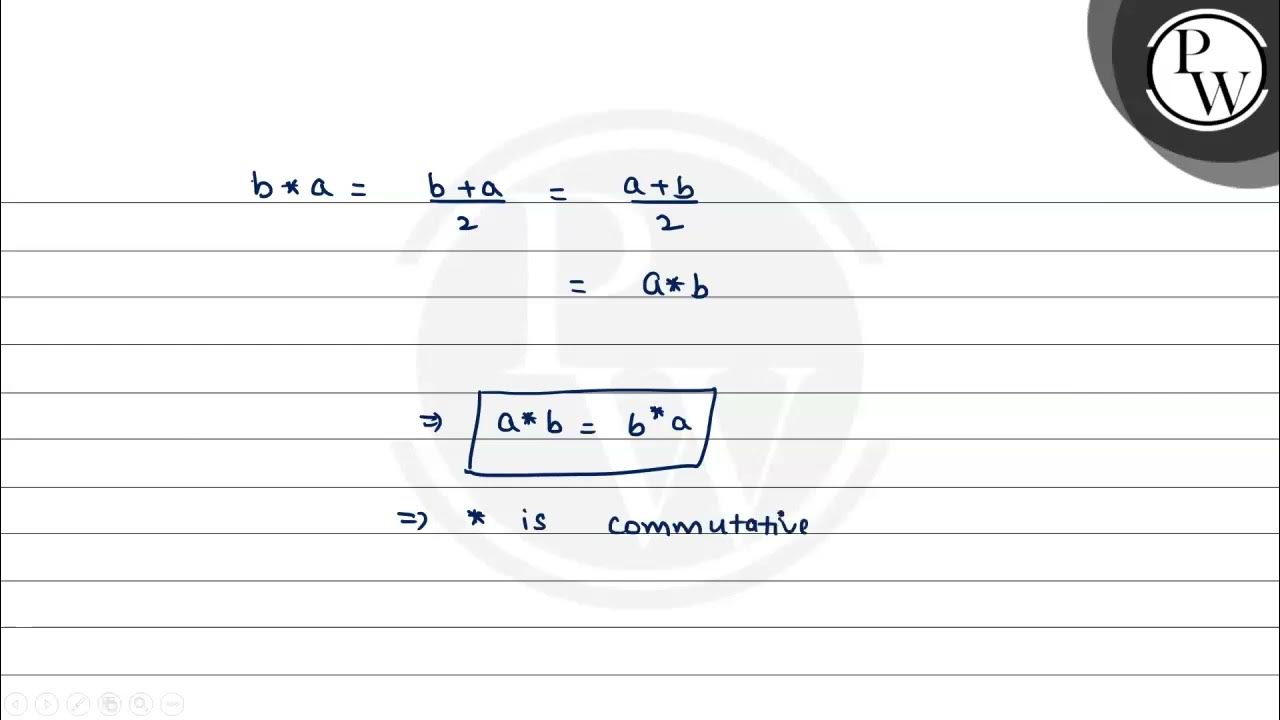 PW
b * a = b + a / 2 = a + b / 2
= a * b
⇒ a * b = b * a
⇒ * is commutative